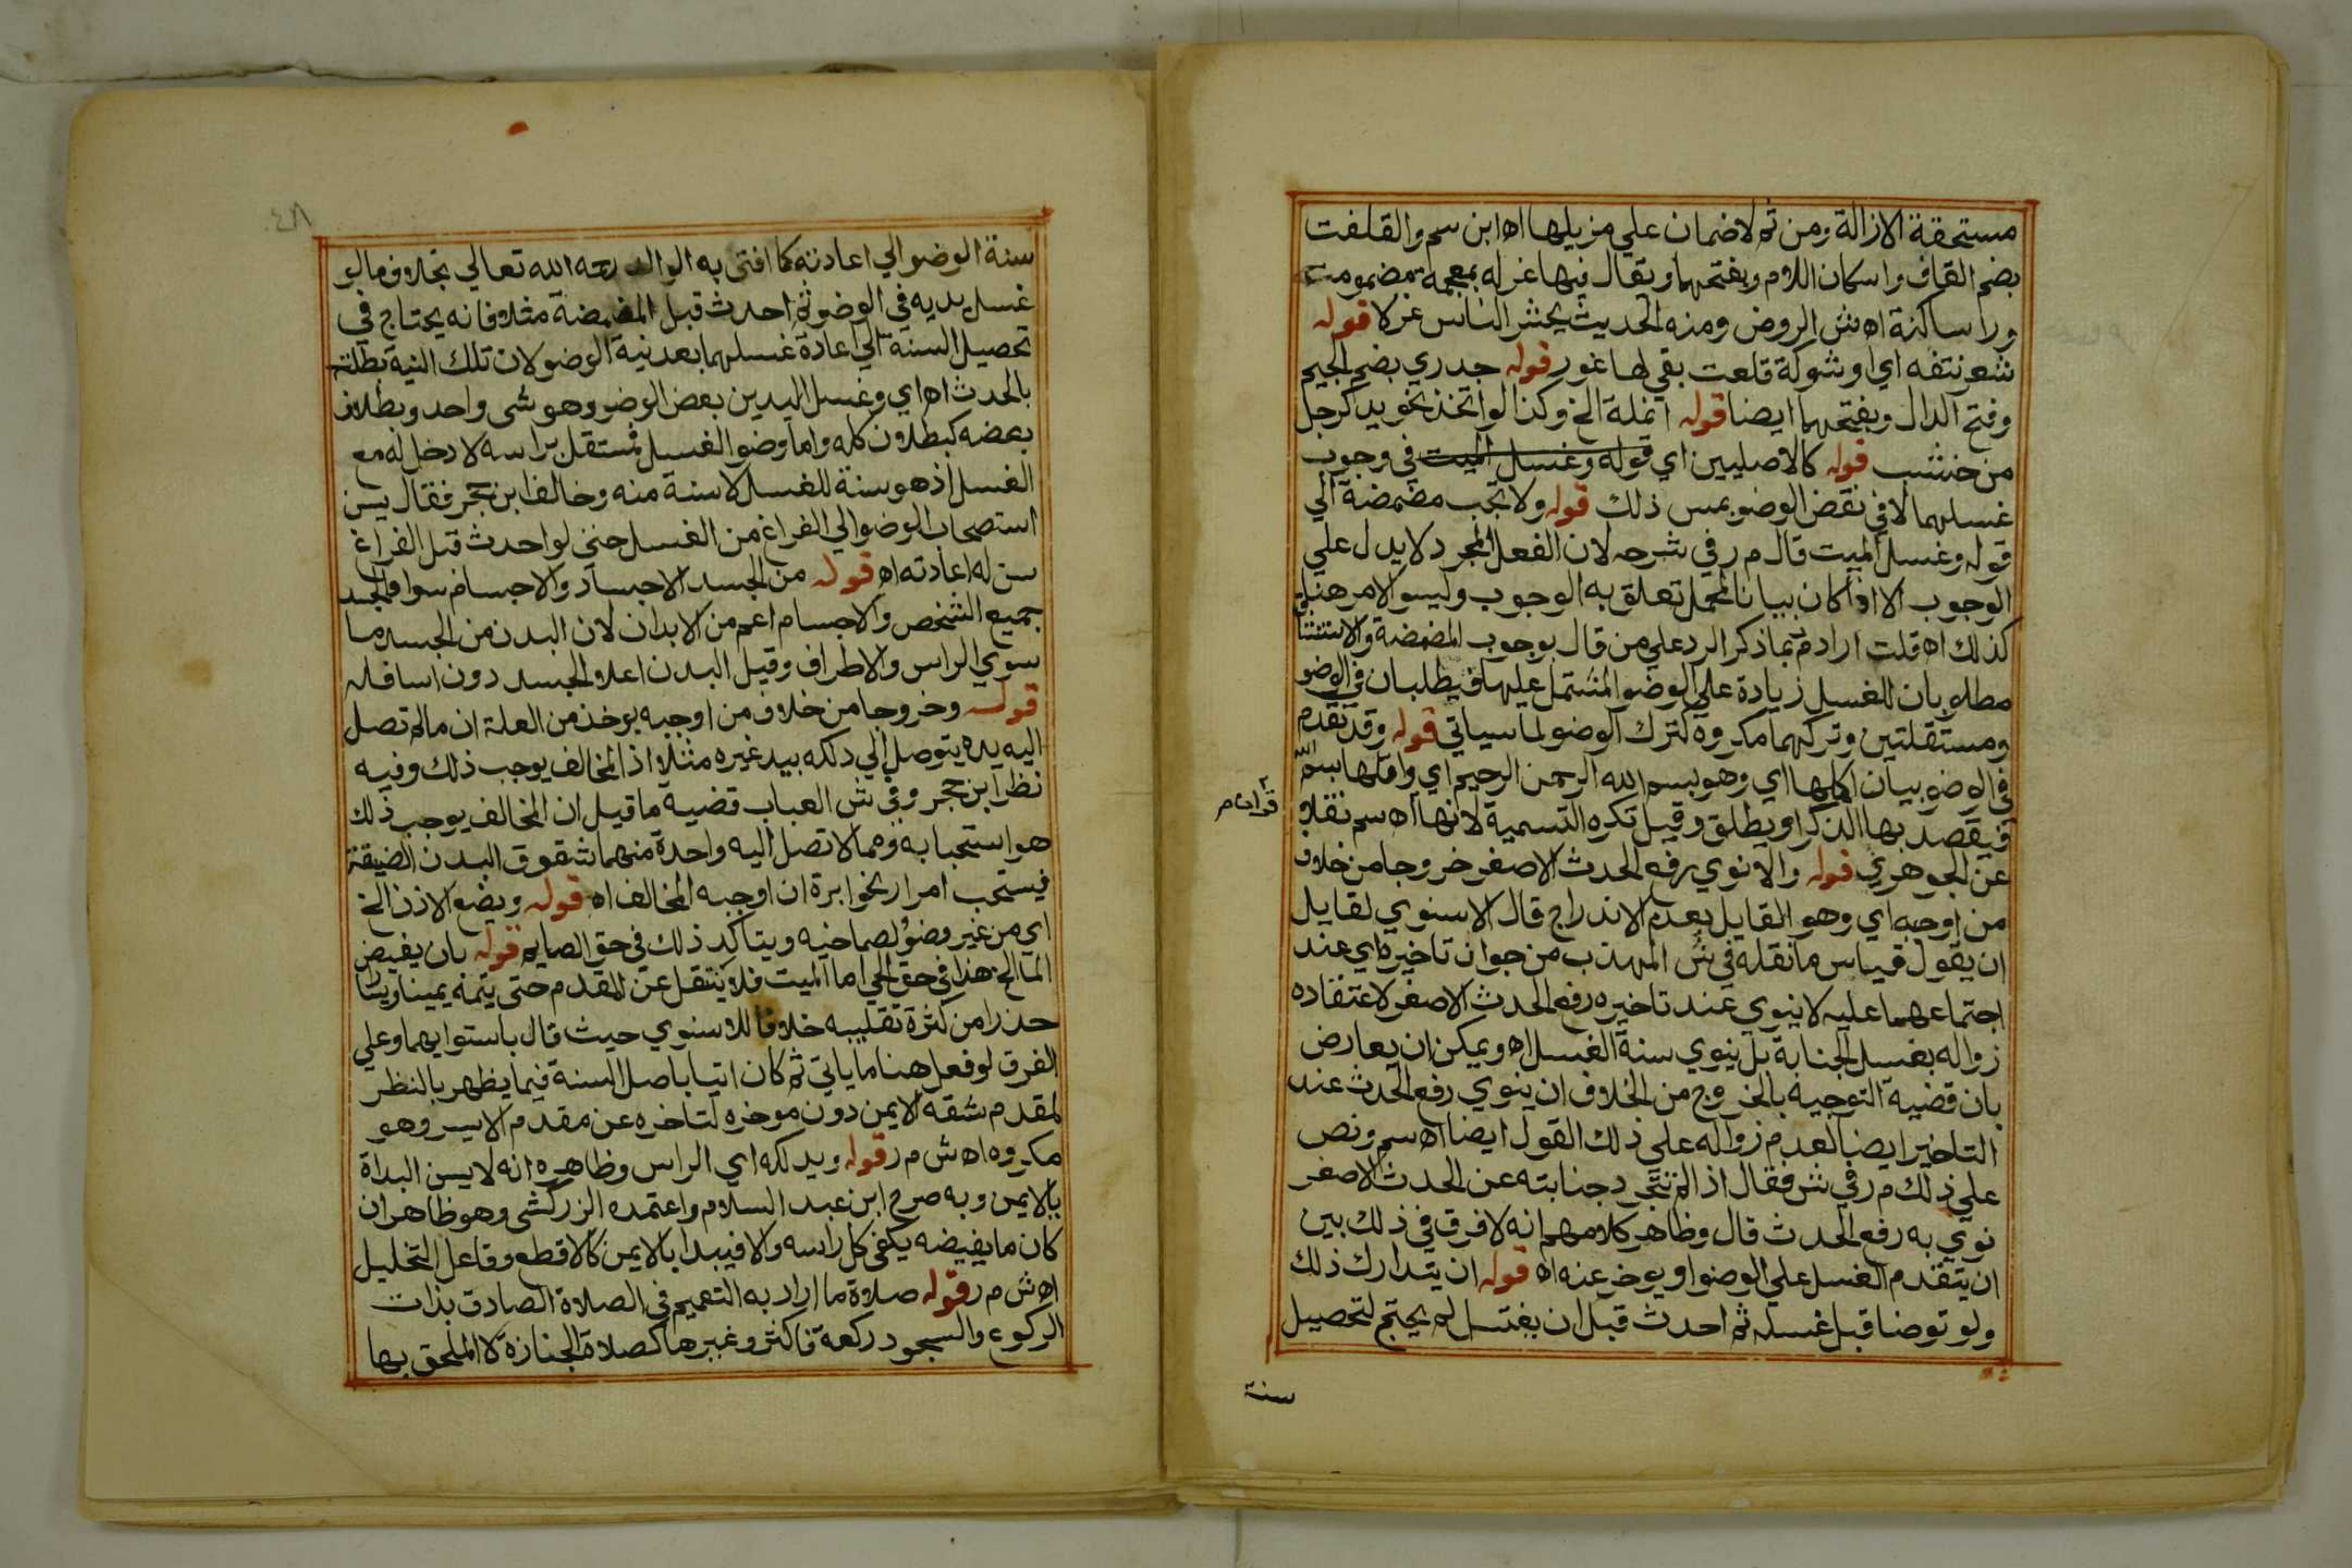 مستحقة الازالة ومن ثم لاضمان علي مزيلها اه ابن سم والقلفت
بضم القاف واسكان اللام وبفتحهما ويقال فيها غرله بمعجمة مضمومت
ورا ساكنة اه ش الروض ومنه الحديث يحشر الناس غرلا قوله
شعر نتفه اي او شوكة قلعت بقي لها غور قوله جدري بضم الجيم
وفتح الدال وبفتحهما ايضا قوله انملة الخ وكذا لو اتخذ نحو يد كرجل
من خشب قوله كالاصليين اي قوله وغسل الميت في وجوب
غسلهما لا في نقض الوضو بمس ذلك قوله ولا تجب مضمضة الي
قوله وغسل الميت قال م ر في شرحه لان الفعل المجرد لا يدل علي
الوجوب الا اذا كان بيانا لمجمل تعلق به الوجوب وليس الامر هنا
كذلك اه قلت اراد م ر بما ذكر الرد علي من قال بوجوب المضمضة والاستنشا
مطلوبان للغسل زيادة علي الوضو المشتمل عليهما فيطلبان في الوضو
ومستقلتين وتركهما مكروه كترك الوضو لما سياتي قوله وقد تقدم
في الوضو بيان اكملها اي وهو بسم الله الرحمن الرحيم اي واقلها بسم الله
فيقصد بها الذكر او يطلق وقيل تكره التسمية لانها اه سم نقلا
عن الجوهري قوله والا نوي رفع الحدث الاصغر خروجا من خلاف
من اوجبه اي وهو القايل بعدم الاندراج قال الاسنوي لقايل
ان يقول قياس ما نقله في ش المهذب من جوان تاخيره اي عند
اجتماعهما عليه لا ينوي عند تاخيره رفع الحدث الاصغر لاعتقاده
زواله بغسل الجنابة بل ينوي سنة الغسل اه ويمكن ان يعارض
بان قضية التوجيه بالخروج من الخلاف ان ينوي رفع الحدث عند
التاخير ايضا لعدم زواله علي ذلك القول ايضا اه سم ونص
علي ذلك م ر في ش فقال اذا لم تتجرد جنابته عن الحدث الاصغر
نوي به رفع الحدث قال وظاهر كلامهم انه لا فرق في ذلك بين
ان يتقدم الغسل علي الوضو او يوخر عنه اه قوله ان يتدارك ذلك
ولو توضا قبل غسله ثم احدث قبل ان يغتسل لم يحتج لتحصيل
سنة
سنة الوضو الي اعادته كما افتي به الوالد رحمه الله تعالي بخلاف ما لو
غسل يديه في الوضو ثم احدث قبل المضمضة مثلا فانه يحتاج في
تحصيل السنة الي اعادة غسلهما بعد نية الوضو لان تلك النية بطلت
بالحدث اه اي وغسل اليدين بعض الوضو وهو شي واحد وبطلان
بعضه كبطلان كله واما وضو الغسل فمستقل براسه لا دخل له مع
الغسل اذ هو سنة للغسل لا سنة منه وخالف ابن حجر فقال يسن
استصحاب الوضو الي الفراغ من الغسل حتي لو احدث قبل الفراغ
سن له اعادته اه قوله من الجسد الاجساد والاجسام سوا والجسد
جميع الشخص والاجسام اعم من الابدان لان البدن من الجسد ما
سوي الراس والاطراف وقيل البدن اعلا الجسد دون اسافله
قوله وخروجا من خلاف من اوجبه يوخذ من العلة ان ما لم تصل
اليه يده يتوصل الي دلكه بيد غيره مثلا اذ المخالف يوجب ذلك وفيه
نظر ابن حجر وفي ش العباب قضية ما قيل ان المخالف يوجب ذلك
هو استحبابه فيما لا تصل اليه واحدة منهما شقوق البدن الضيقة
فيستحب امرار نحو ابرة ان اوجبه المخالف اه قوله ويضع الاذن الخ
اي من غير وضو لصماخيه ويتاكد ذلك في حق الصايم قوله بان يفيض
الما الخ هذا في حق الحي اما الميت فلا ينتقل عن المقدم حتي يتمه يمينا ويسا
حذرا من كثرة تقليبه خلافا للاسنوي حيث قال باستوايهما وعلي
الفرق لو فعل هنا ما ياتي ثم كان اتيا باصل السنة فيما يظهر بالنظر
لمقدم شقه الايمن دون موخره لتاخره عن مقدم الايسر وهو
مكروه اه ش م ر قوله ويدلكه اي الراس وظاهره انه لا يسن البداة
بالايمن وبه صرح ابن عبد السلام واعتمده الزركشي وهو ظاهر ان
كان ما يفيضه يكفي كل راسه والا فيبدا بالايمن كالاقطع وفاعل التخليل
اه ش م ر قوله صلاة ما اراد به التعميم في الصلاة الصادق بذات
الركوع والسجود ركعة فاكثر وغيرها كصلاة الجنازة لا الملحق بها